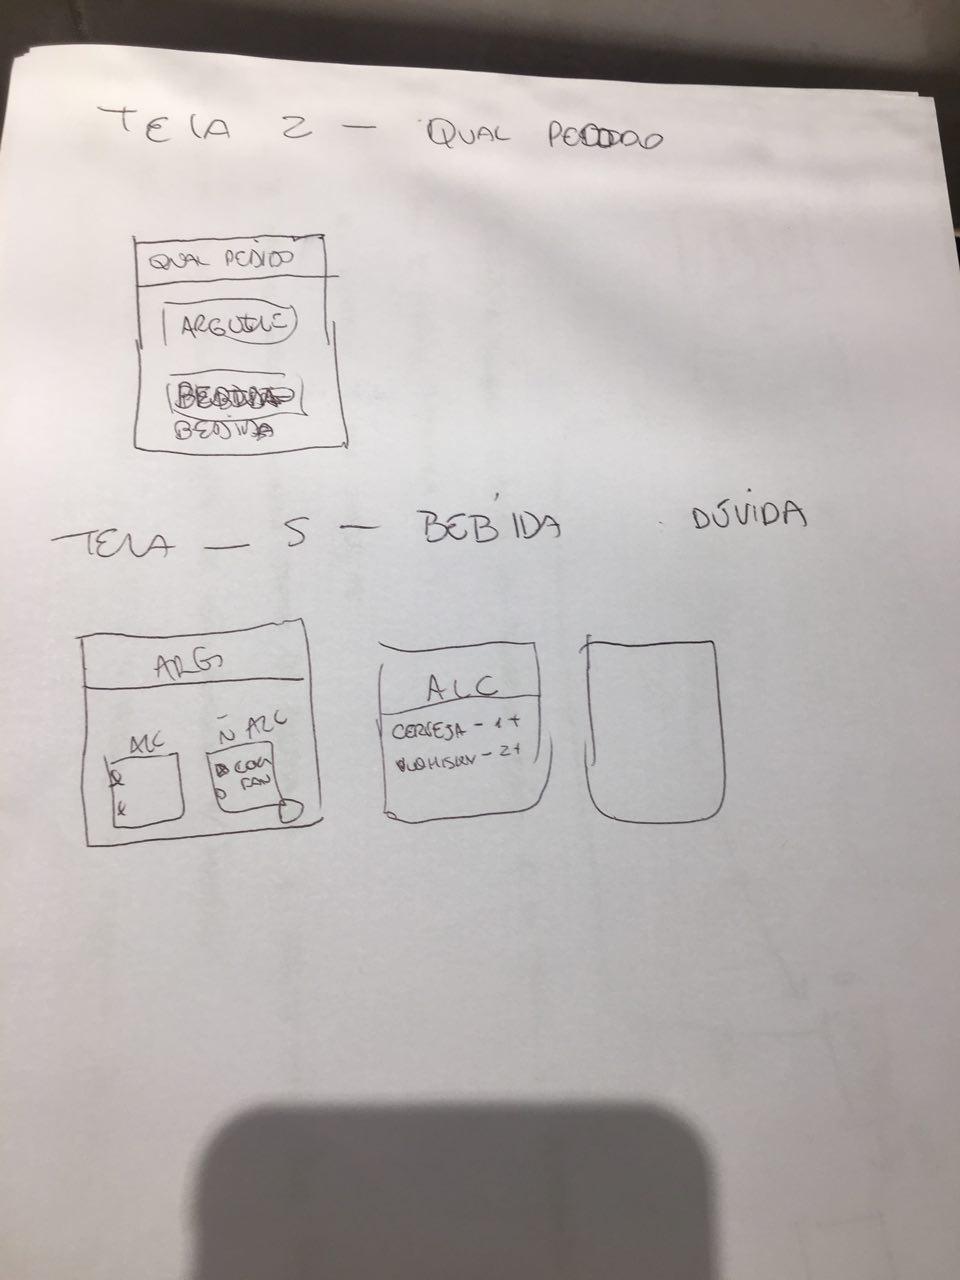 TELA 2 - QUAL PEDIDO
QUAL PEDIDO
ARGUILE
BEBIDA
BEBIDA
TELA - 5 - BEBIDA
DÚVIDA
ARG
ALC
Ñ ALC
COCA
FAN
ALC
CERVEJA - 1+
- 2+